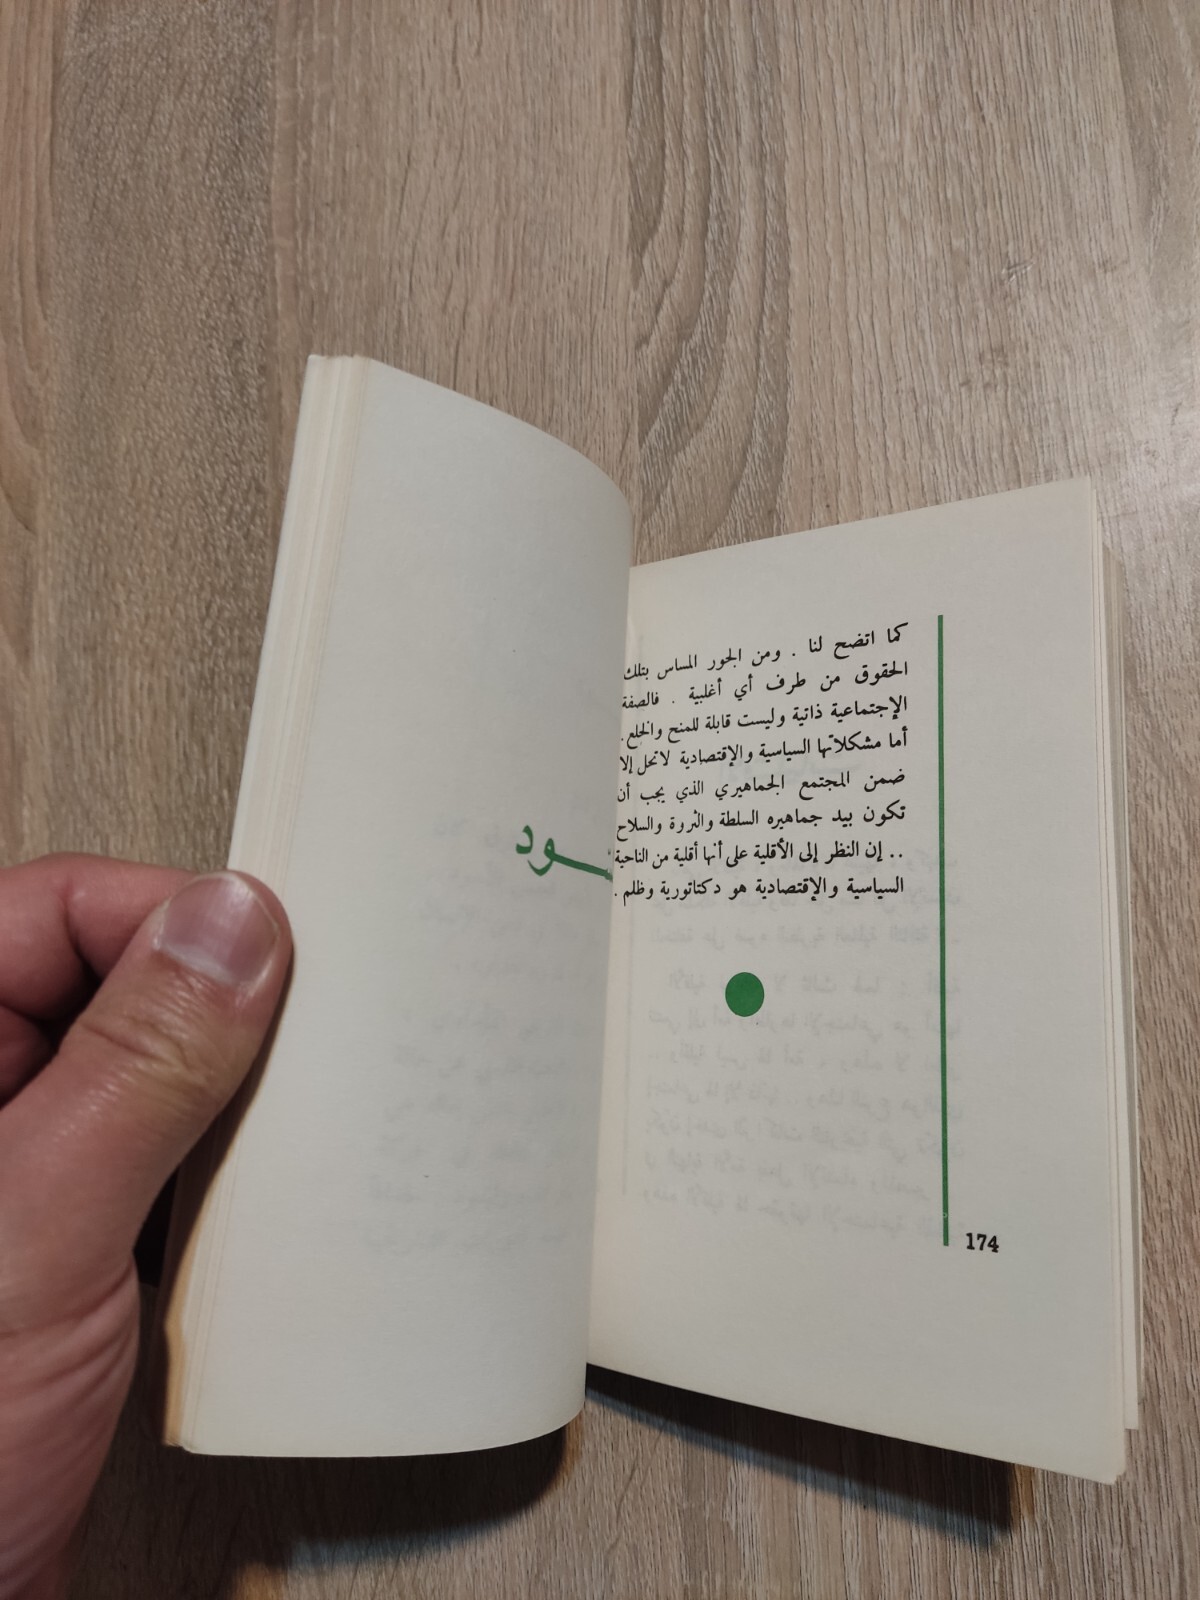 كما اتضح لنا . ومن الجور المساس بتلك
الحقوق من طرف أي أغلبية . فالصفة
الإجتماعية ذاتية وليست قابلة للمنح والخلع .
أما مشكلاتها السياسية والإقتصادية لاتحل إلا
ضمن المجتمع الجماهيري الذي يجب أن
تكون بيد جماهيره السلطة والثروة والسلاح
.. إن النظر إلى الأقلية على أنها أقلية من الناحية
السياسية والإقتصادية هو دكتاتورية وظلم .
174